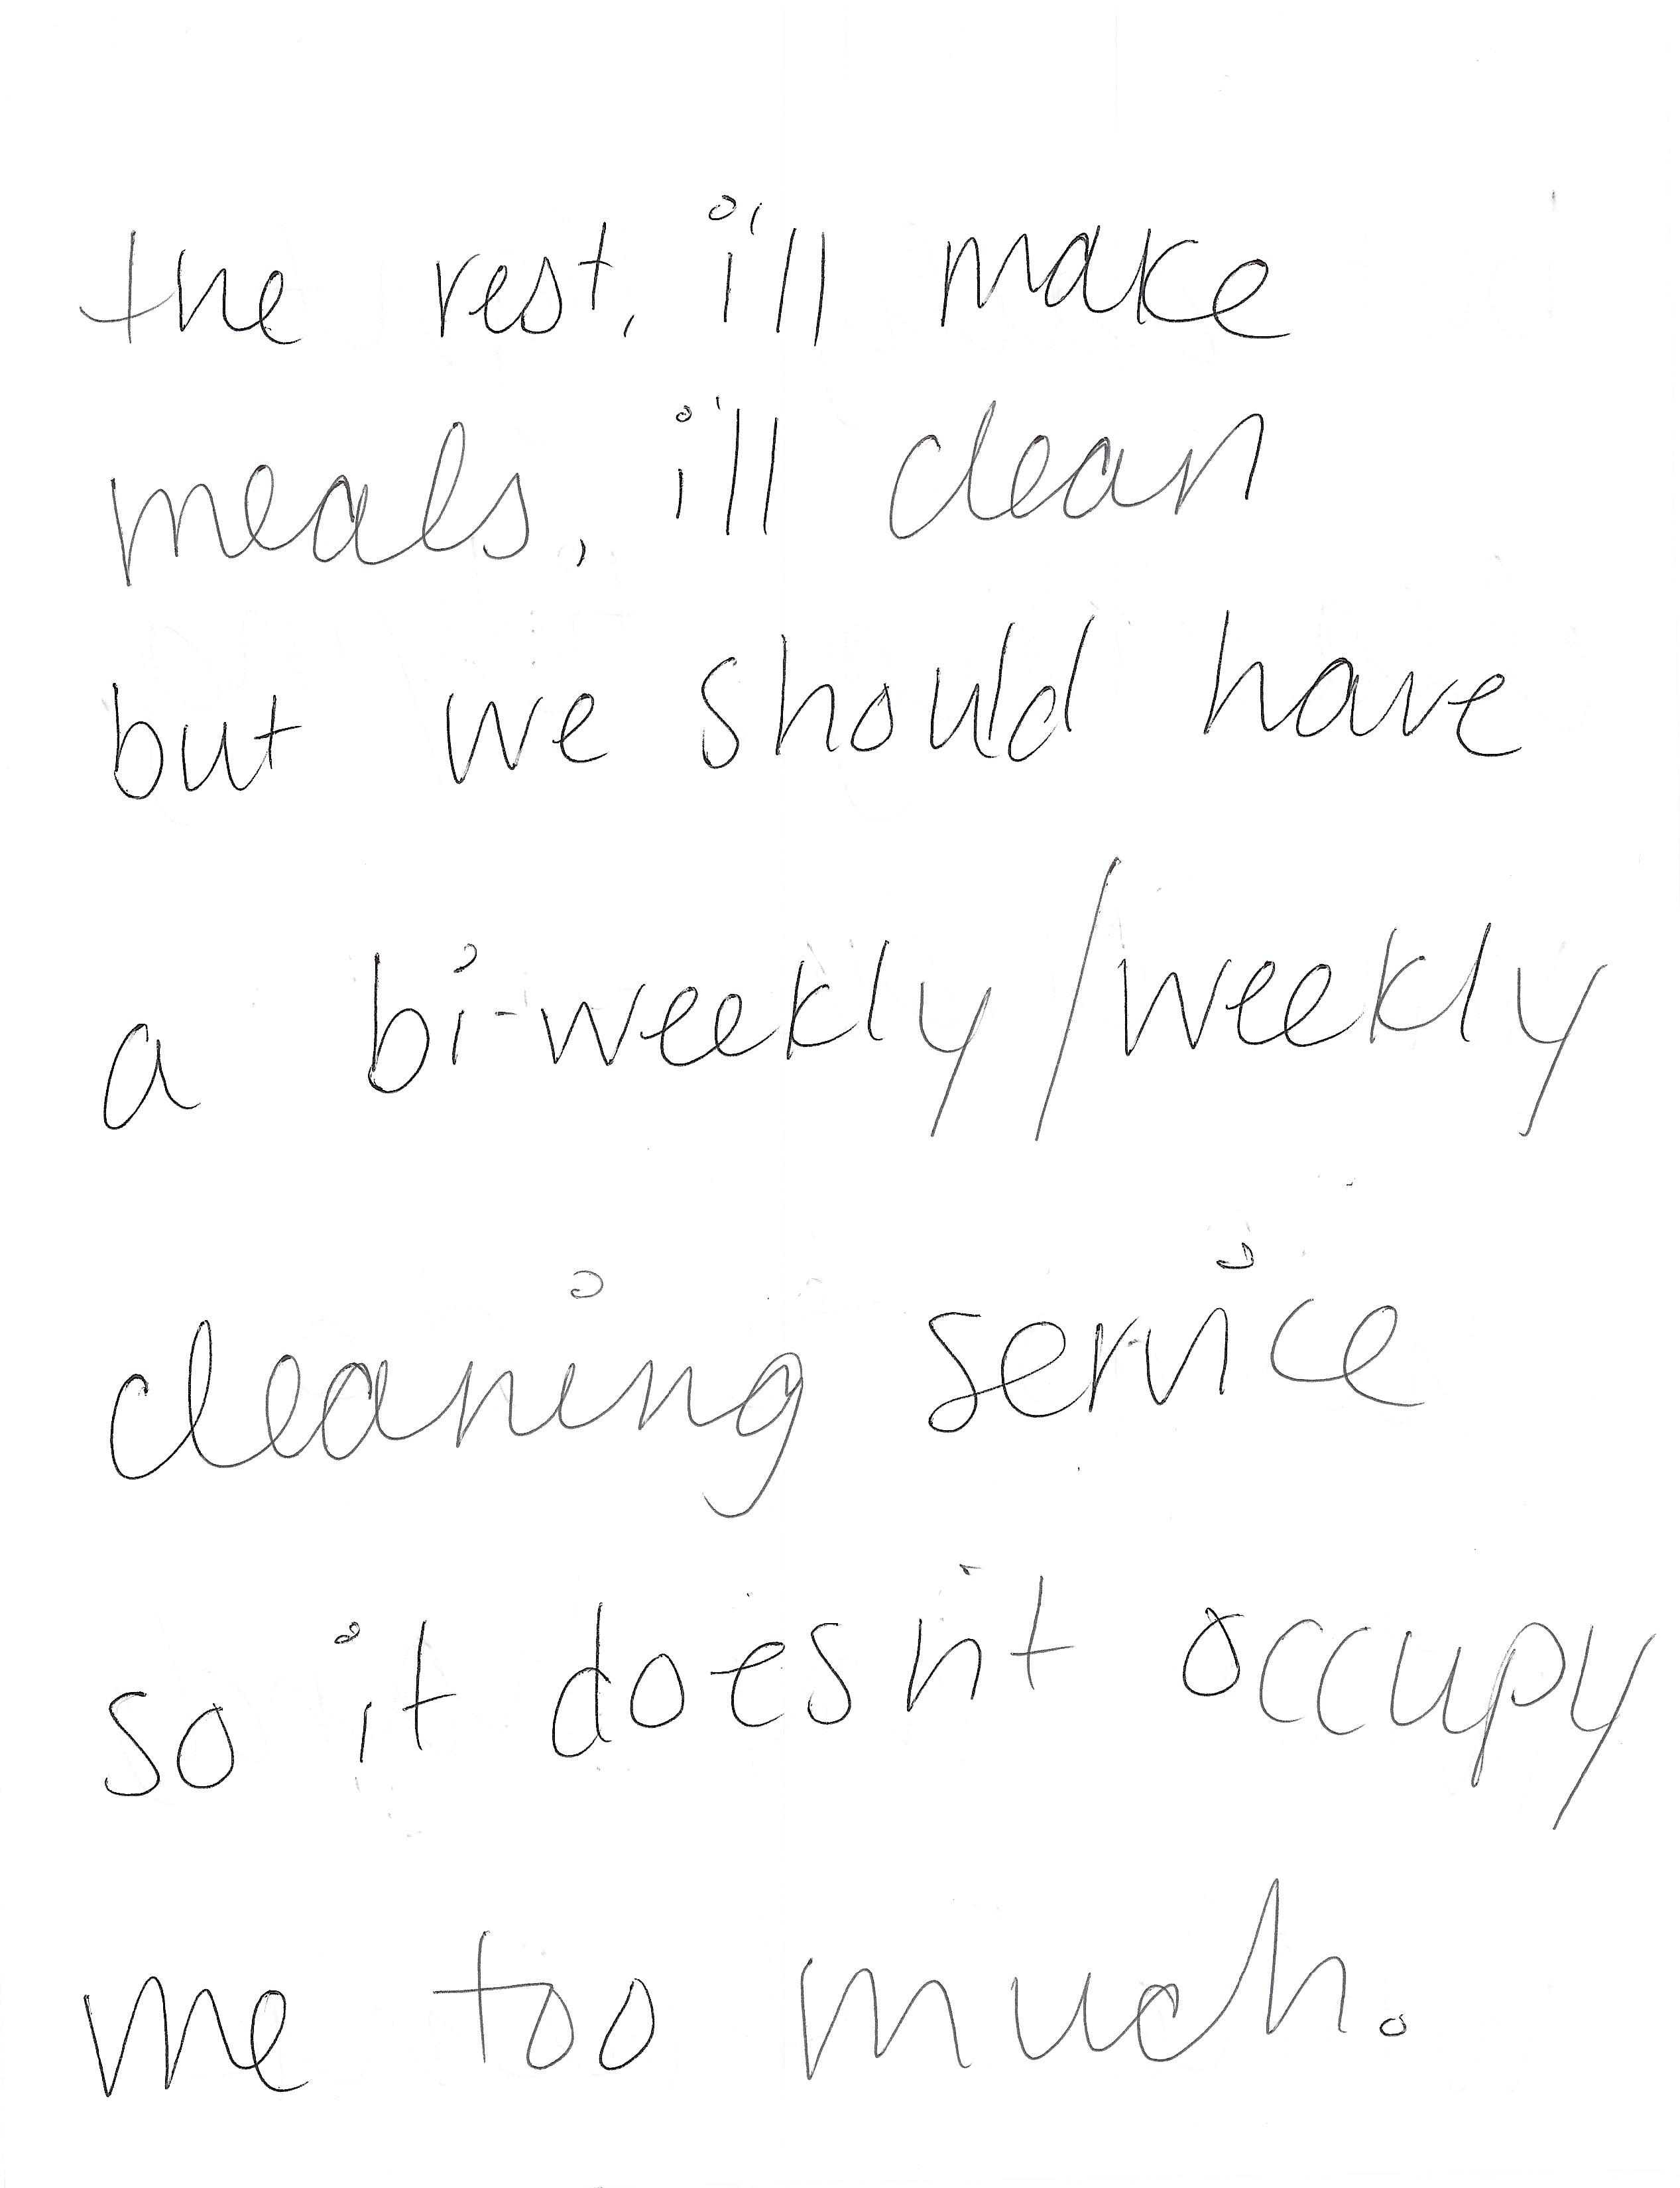 the rest, i'll make
meals, i'll clean
but we should have
a bi-weekly/weekly
cleaning service
so it doesn't occupy
me too much.